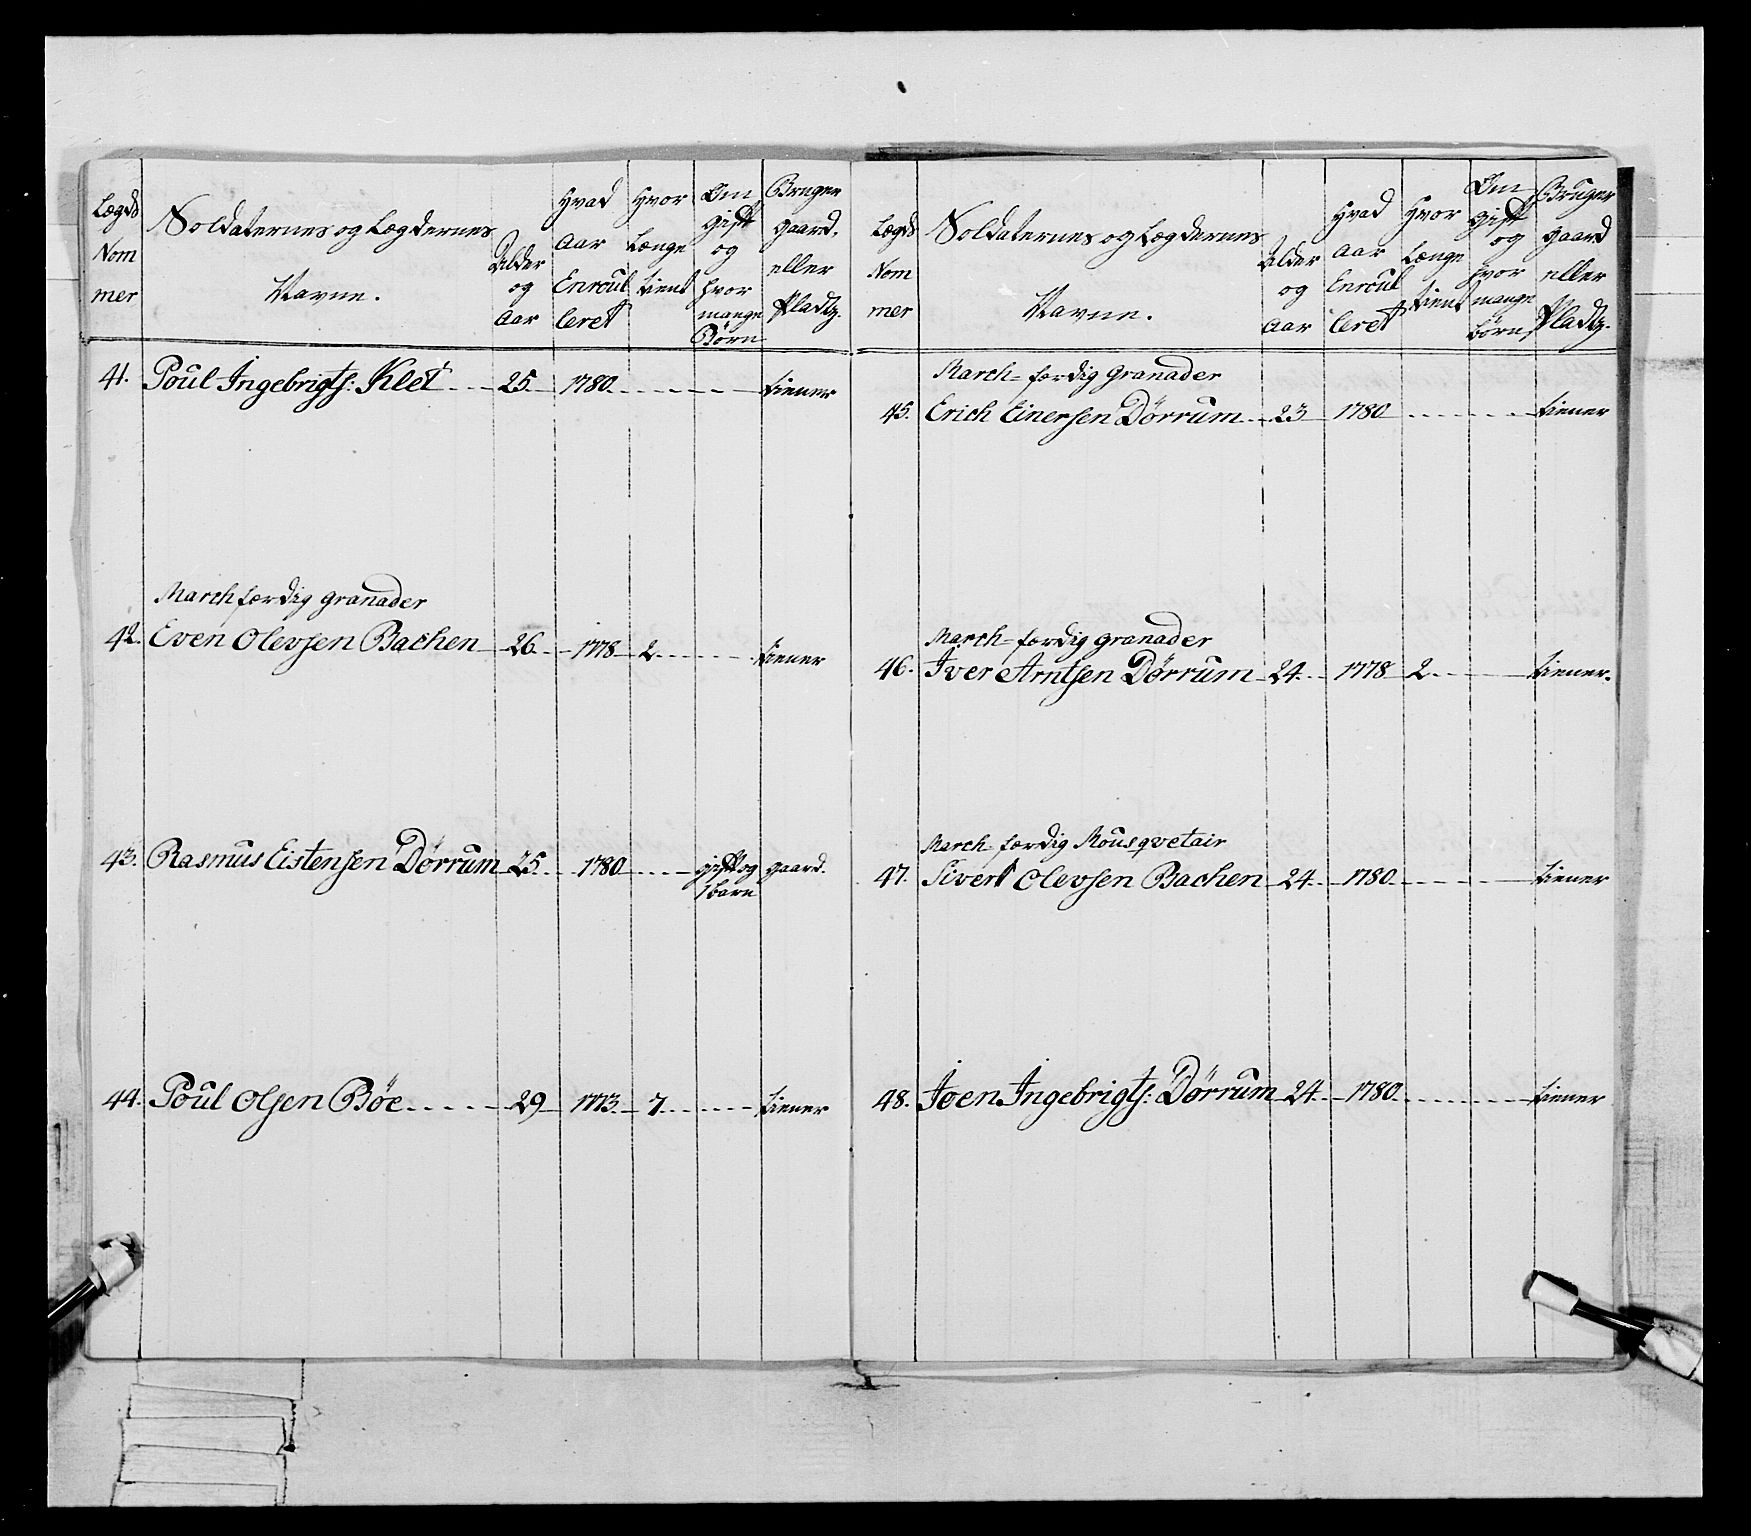 Lægds Nom mer
Soldaternes og Lægdernes Navne.
Alder og Aar
Hvad Aar Enroul leret
Hvor Længe tient
Om gift og hvor mange Börn
Bruger gaard. eller Pladtz.
41. Poul Ingebrigts: Klet 25 1780 tiener
March færdig granader
42. Even Olevsen Bachen 26 1778 2 tiener
43. Rasmus Eistensen Dørrum 25 1780 gift og gaard.
1 barn
44. Poul Olsen Böe 29 1773 7 tiener
Lægds Nom mer
Soldaternes og Lægdernes Navne.
Alder og Aar
Hvad Aar Enroul leret
Hvor Længe tient
Om gift og hvor mange börn
Bruger gaard eller Pladtz.
March-færdig granader
45. Erich Einersen Dörrum 23 1780 tiener
March-færdig granader
46. Iver Arntsen Dörrum 24 1778 2 tiener.
March færdig Mousqvetair
47. Sivert Olevsen Bachen 24 1780 tiener
48. Joen Ingebrigts: Dörrum 24 1780 tiener